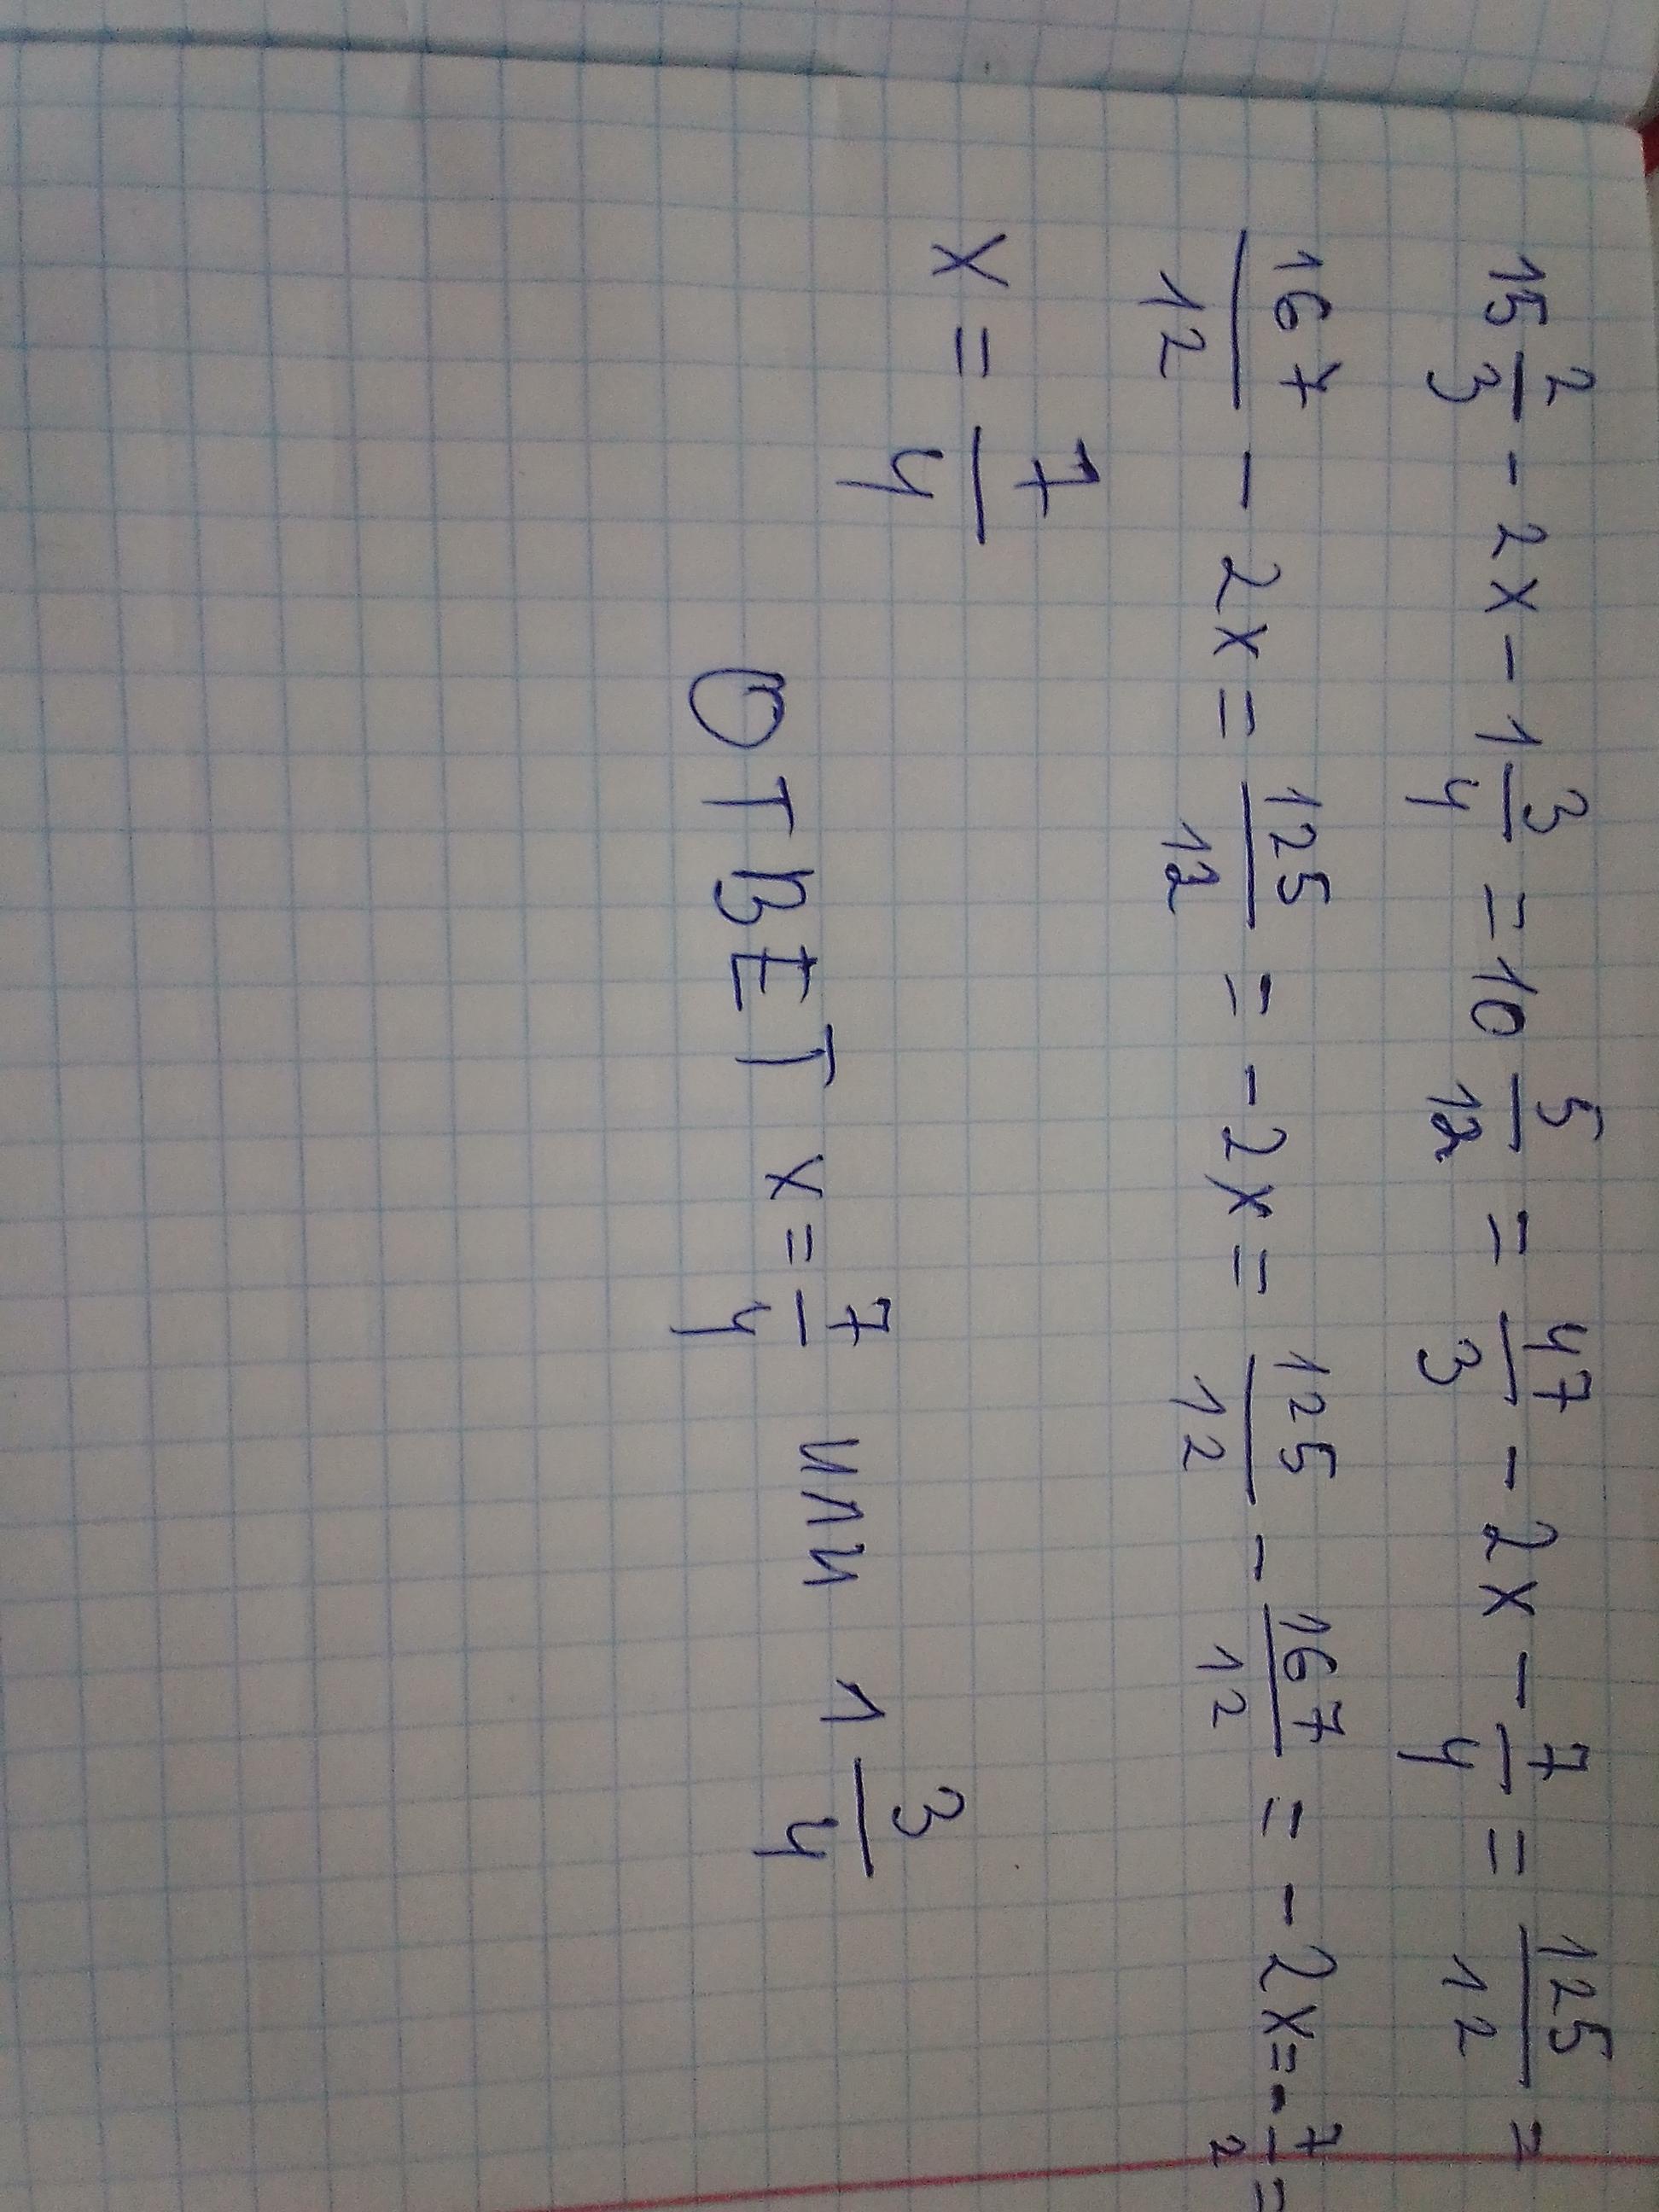 15 2/3 - 2x - 1 3/4 = 10 5/12 = 47/3 - 2x - 7/4 = 125/12 =
167/12 - 2x = 125/12 = - 2x = 125/12 - 167/12 = - 2x = - 7/2 =
x = 7/4
ОТВЕТ x = 7/4 или 1 3/4